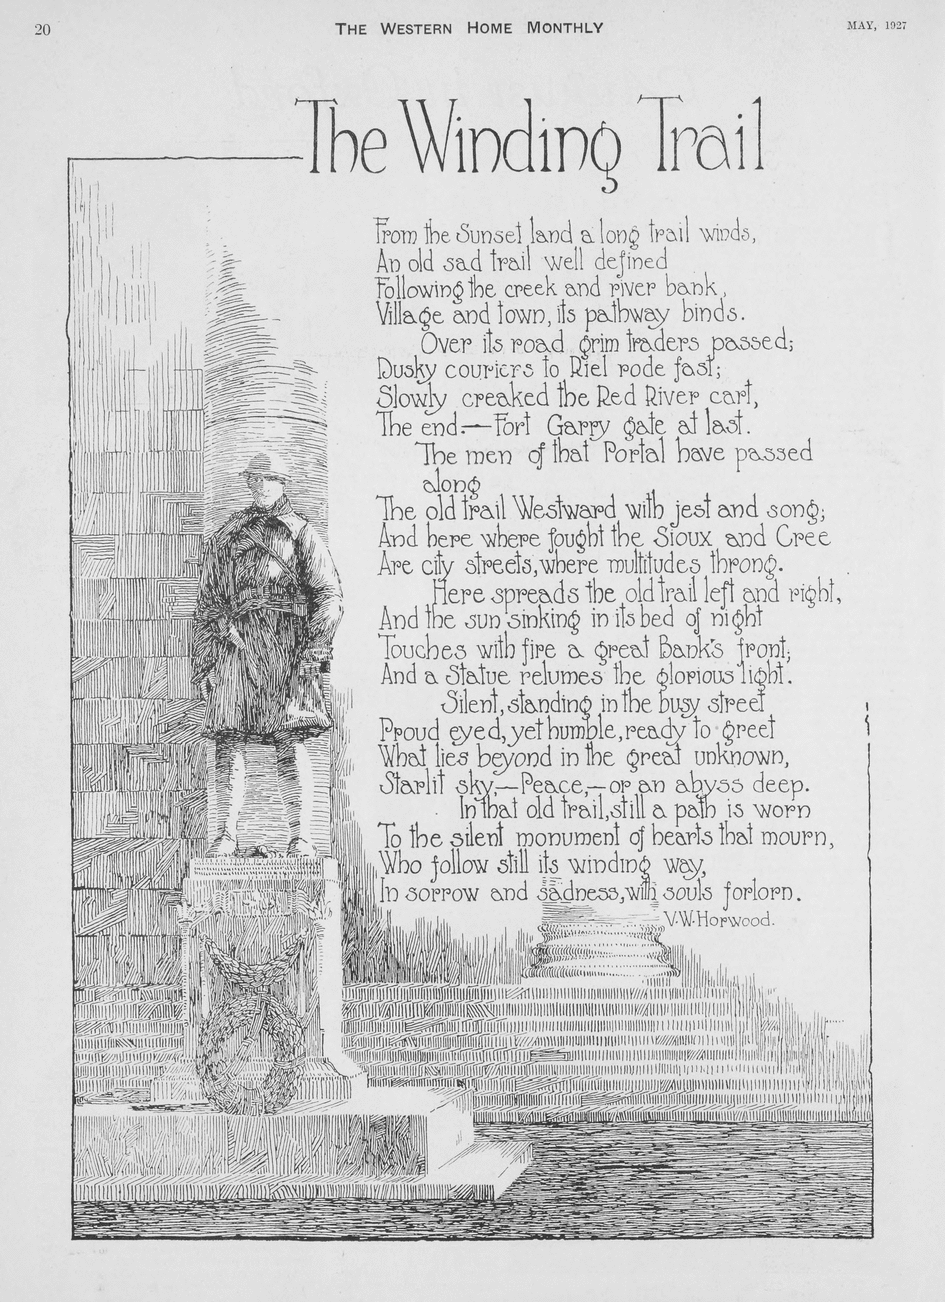 20
THE WESTERN HOME MONTHLY
MAY, 1927
The Winding Trail
From the Sunset land a long trail winds,
An old sad trail well defined
Following the creek and river bank,
Village and town, its pathway binds.
Over its road grim traders passed;
Dusky couriers to Riel rode fast;
Slowly creaked the Red River cart,
The end.— Fort Garry gate at last.
The men of that Portal have passed
along
The old trail Westward with jest and song;
And here where fought the Sioux and Cree
Are city streets, where multitudes throng.
Here spreads the old trail left and right,
And the sun sinking in its bed of night
Touches with fire a great Bank's front;
And a Statue relumes the glorious light.
Silent, standing in the busy street
Proud eyed, yet humble, ready to greet
What lies beyond in the great unknown,
Starlit sky,— Peace,— or an abyss deep.
In that old trail, still a path is worn
To the silent monument of hearts that mourn,
Who follow still its winding way,
In sorrow and sadness, with souls forlorn.
V.W. Horwood.